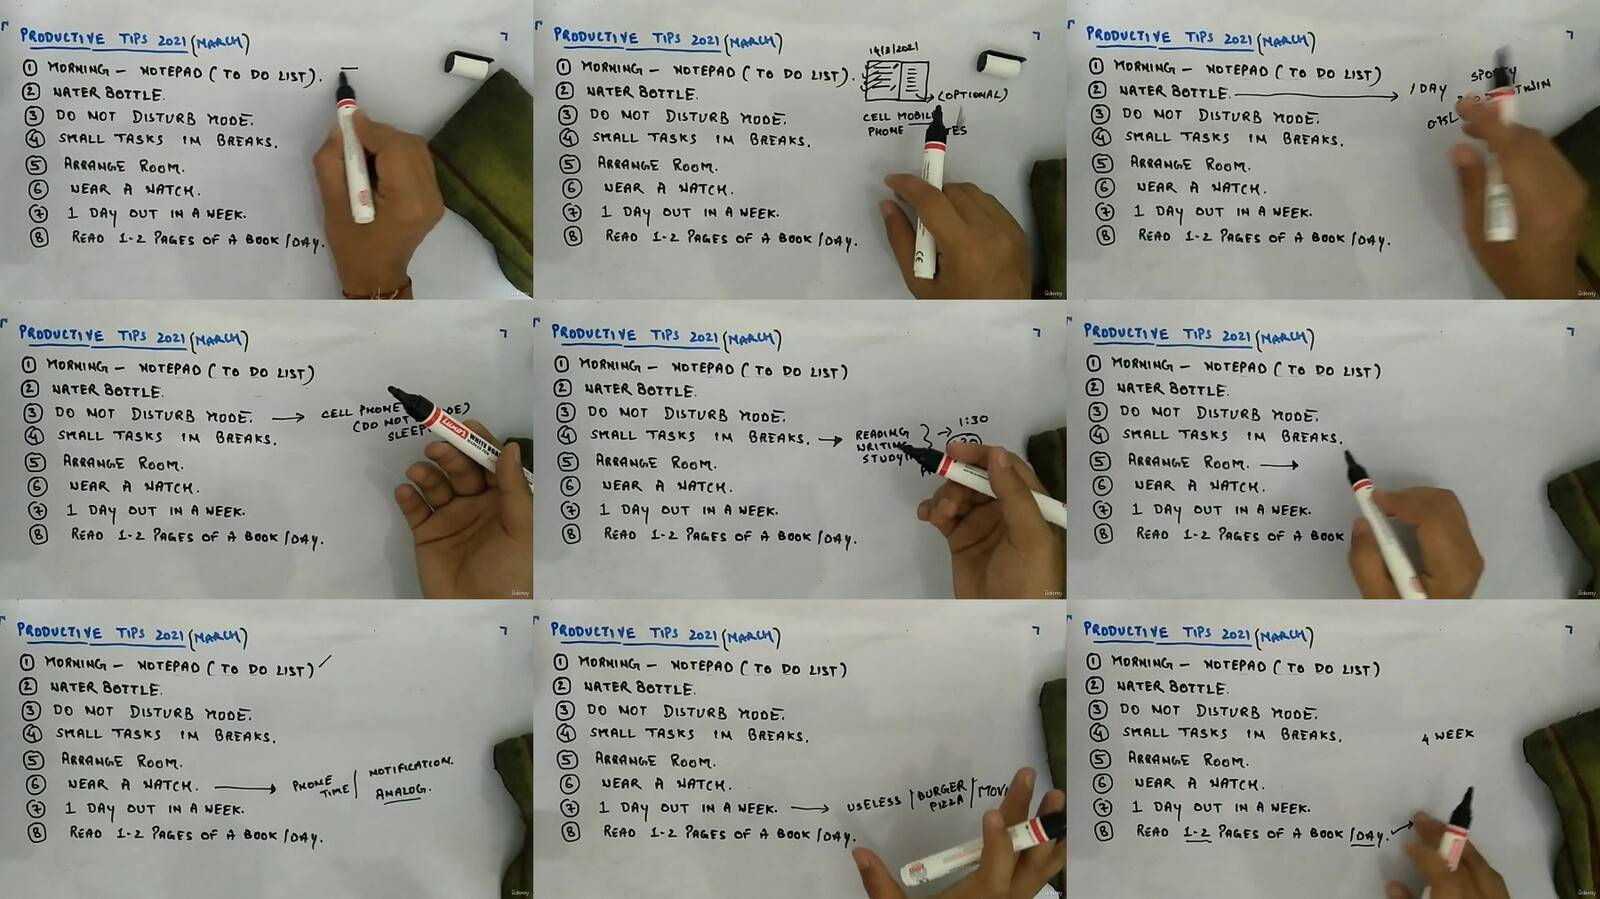 PRODUCTIVE TIPS 2021 (MARCH) 7
① MORNING - NOTEPAD (TO DO LIST).
② WATER BOTTLE.
③ DO NOT DISTURB MODE.
④ SMALL TASKS IN BREAKS.
⑤ ARRANGE ROOM.
⑥ WEAR A WATCH.
⑦ 1 DAY OUT IN A WEEK.
⑧ READ 1-2 PAGES OF A BOOK/DAY.
PRODUCTIVE TIPS 2021 (MARCH) 7
① MORNING - NOTEPAD (TO DO LIST).
14/3/2021
② WATER BOTTLE.
(OPTIONAL)
③ DO NOT DISTURB MODE.
CELL MOBILE
PHONE
④ SMALL TASKS IN BREAKS.
⑤ ARRANGE ROOM.
⑥ WEAR A WATCH.
⑦ 1 DAY OUT IN A WEEK.
⑧ READ 1-2 PAGES OF A BOOK/DAY.
udemy
PRODUCTIVE TIPS 2021 (MARCH) 7
① MORNING - NOTEPAD (TO DO LIST)
② WATER BOTTLE. → 1 DAY
③ DO NOT DISTURB MODE.
④ SMALL TASKS IN BREAKS.
⑤ ARRANGE ROOM.
⑥ WEAR A WATCH.
⑦ 1 DAY OUT IN A WEEK.
⑧ READ 1-2 PAGES OF A BOOK/DAY.
udemy
PRODUCTIVE TIPS 2021 (MARCH) 7
① MORNING - NOTEPAD (TO DO LIST)
② WATER BOTTLE.
③ DO NOT DISTURB MODE. → CELL PHONE
(DO NOT
SLEEP
④ SMALL TASKS IN BREAKS.
⑤ ARRANGE ROOM.
⑥ WEAR A WATCH.
⑦ 1 DAY OUT IN A WEEK.
⑧ READ 1-2 PAGES OF A BOOK/DAY.
udemy
PRODUCTIVE TIPS 2021 (MARCH) 7
① MORNING - NOTEPAD (TO DO LIST)
② WATER BOTTLE.
③ DO NOT DISTURB MODE.
④ SMALL TASKS IN BREAKS. → READING → 1:30
WRITING
⑤ ARRANGE ROOM.
⑥ WEAR A WATCH.
⑦ 1 DAY OUT IN A WEEK.
⑧ READ 1-2 PAGES OF A BOOK/DAY.
udemy
PRODUCTIVE TIPS 2021 (MARCH) 7
① MORNING - NOTEPAD (TO DO LIST)
② WATER BOTTLE.
③ DO NOT DISTURB MODE.
④ SMALL TASKS IN BREAKS.
⑤ ARRANGE ROOM. →
⑥ WEAR A WATCH.
⑦ 1 DAY OUT IN A WEEK.
⑧ READ 1-2 PAGES OF A BOOK
udemy
PRODUCTIVE TIPS 2021 (MARCH) 7
① MORNING - NOTEPAD (TO DO LIST)
② WATER BOTTLE.
③ DO NOT DISTURB MODE.
④ SMALL TASKS IN BREAKS.
⑤ ARRANGE ROOM.
⑥ WEAR A WATCH. → PHONE TIME | NOTIFICATION.
ANALOG.
⑦ 1 DAY OUT IN A WEEK.
⑧ READ 1-2 PAGES OF A BOOK/DAY.
udemy
PRODUCTIVE TIPS 2021 (MARCH) 7
① MORNING - NOTEPAD (TO DO LIST)
② WATER BOTTLE.
③ DO NOT DISTURB MODE.
④ SMALL TASKS IN BREAKS.
⑤ ARRANGE ROOM.
⑥ WEAR A WATCH.
⑦ 1 DAY OUT IN A WEEK. → USELESS / BURGER PIZZA /
⑧ READ 1-2 PAGES OF A BOOK/DAY.
udemy
PRODUCTIVE TIPS 2021 (MARCH) 7
① MORNING - NOTEPAD (TO DO LIST)
② WATER BOTTLE.
③ DO NOT DISTURB MODE.
④ SMALL TASKS IN BREAKS.
4 WEEK
⑤ ARRANGE ROOM.
⑥ WEAR A WATCH.
⑦ 1 DAY OUT IN A WEEK.
⑧ READ 1-2 PAGES OF A BOOK/DAY. →
udemy